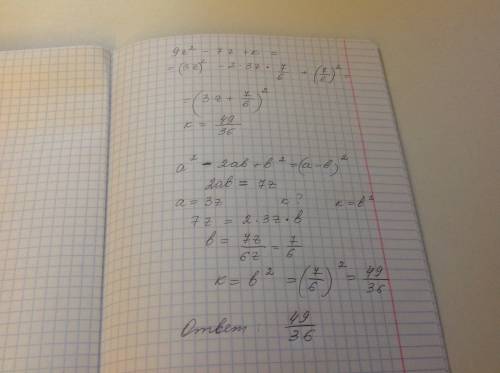 9z² - 7z + к =
= (3z)² - 2·3z·7/6 + (7/6)² =
= (3z + 7/6)²
к = 49/36
a² - 2ab + b² = (a - b)²
2ab = 7z
a = 3z к ? к = b²
7z = 2·3z·b
b = 7z/6z = 7/6
к = b² = (7/6)² = 49/36
Ответ : 49/36